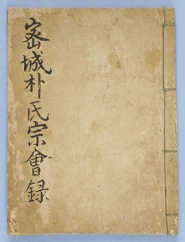 密城朴氏宗會録